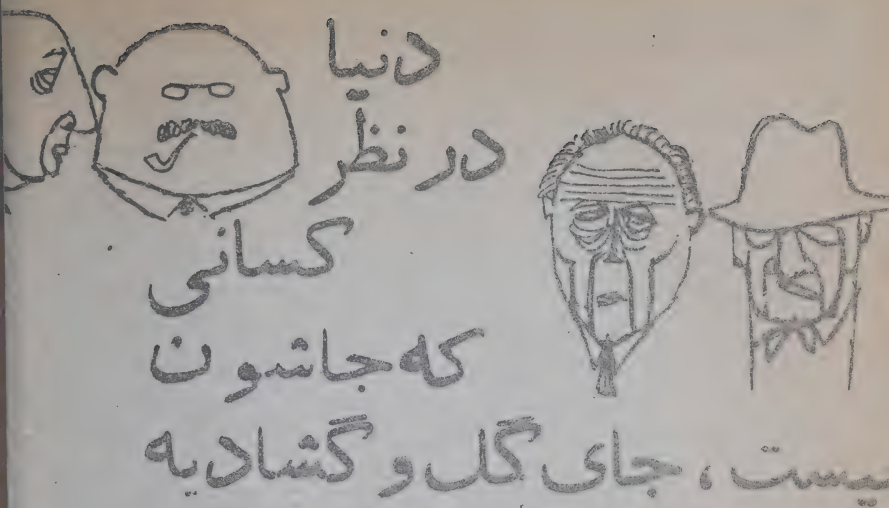 دنیا
در نظر
کسانی
که جاشون
جای گل و گشادیه